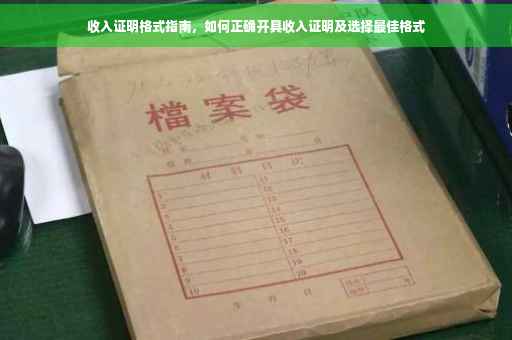 收入证明格式指南，如何正确开具收入证明及选择最佳格式
檔案袋
材料目次
1 11
2 12
3 13
4 14
5 15
6 16
7 17
8 18
9 19
10 20
年 月 日